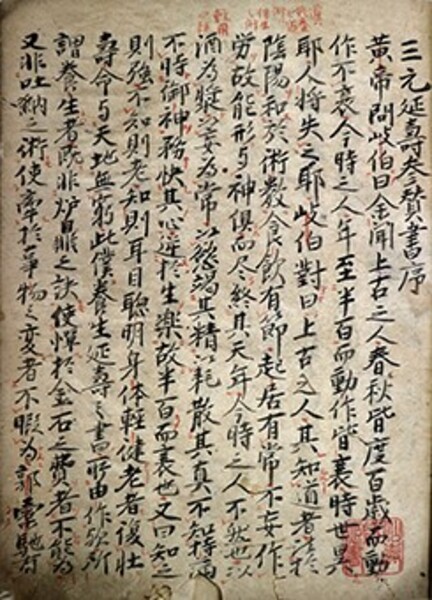 三元延壽參贊書序
黃帝問岐伯曰余聞上古之人春秋皆度百歲而動
作不衰今時之人年至半百而動作皆衰時世異
耶人將失之耶岐伯對曰上古之人其知道者法於
陰陽和於術數食飲有節起居有常不妄作
勞故能形与神俱而尽終其天年今時之人不然也以
酒為漿以妄為常以慾竭其精以耗散其真不知持滿
不時御神務快其心逆於生樂故半百而衰也又曰知之
則強不知則老知則耳目聰明身体輕健老者復壯
壽命与天地無窮此僕養生延壽之書所由作歟所
謂養生者既非炉鼎之訣使憚於金石之費者不能為
又非吐納之術使牽於事物之變者不暇為郭橐駞